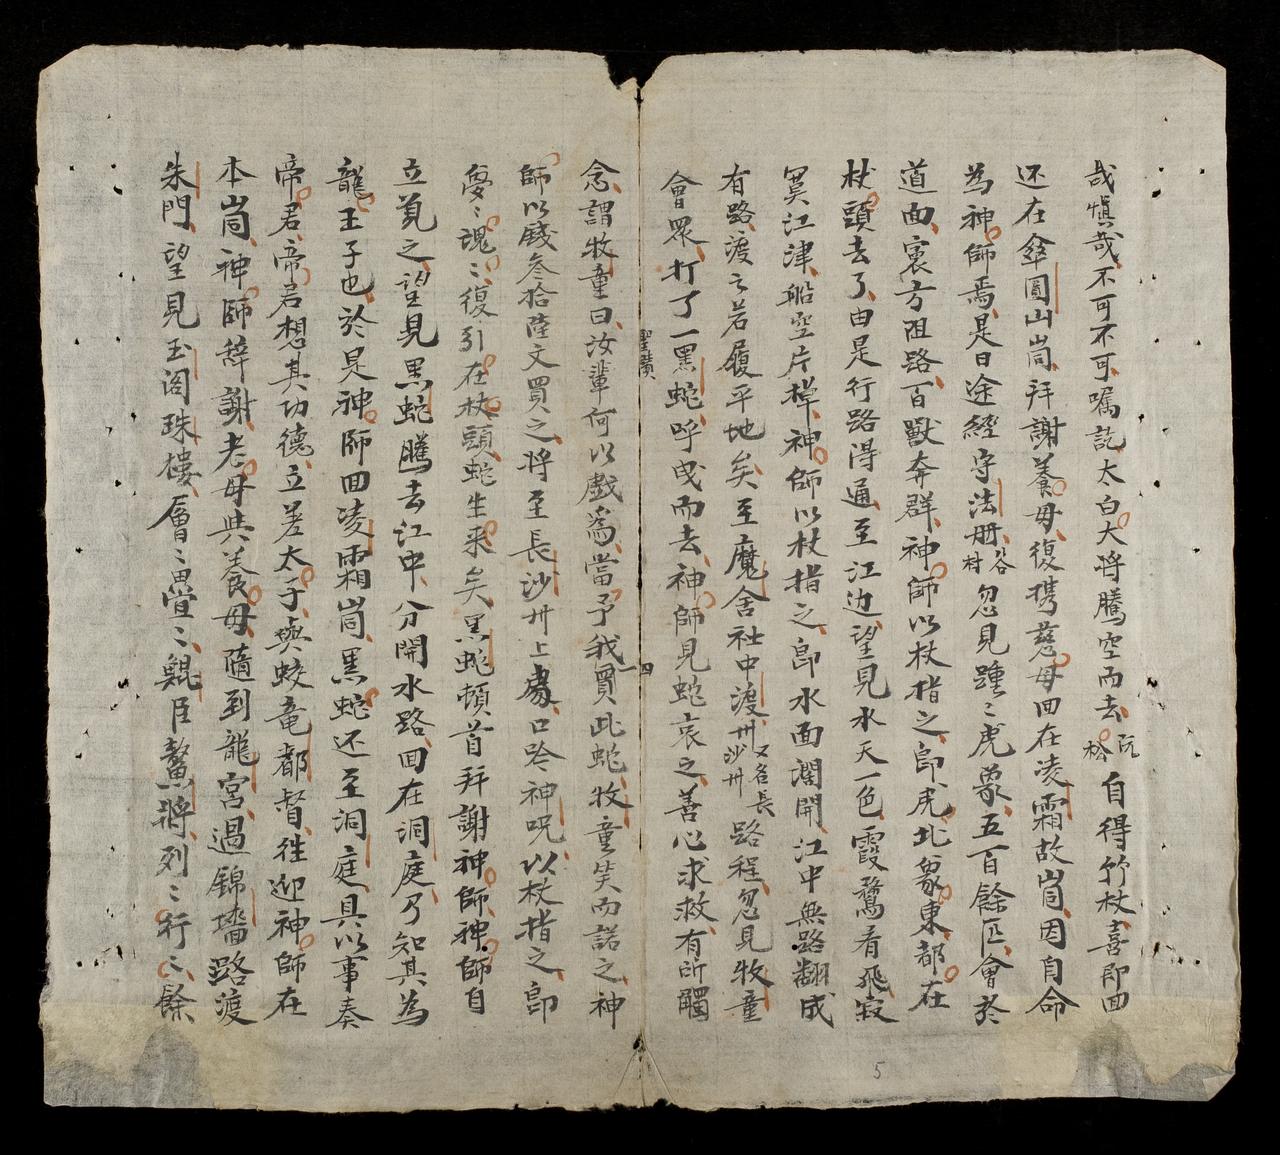 哉愼哉不可不可嘱訖太白大将騰空而去阮松自得竹杖喜即回
还在傘圓山峝拜謝養母復携慈母回在凌霜故峝因自命
為神師焉是日途經宇法册谷村忽见踵〻虎象五百餘匹會於
道面裏方阻路百獸奔群神師以杖指之即虎北象東都在
杖頭去了由是行路得通至江边望見水天一色霞鶩看飛寂
寞江津船空片棹神師以杖指之即水面濶開江中無路翻成
有路渡之若履平地矣至魔舍社中渡州又名長沙州路程忽見牧童
會眾打了一黑蛇呼曳而去神師見蛇哀之善心求救有所觸
聖蹟
四
念謂牧童曰汝輩何以戲為當予我買此蛇牧童笑而諾之神
師以錢叁拾陸文買之将至長沙州上處口吟神呪以杖指之即
憂〻魂〻復引在杖頭蛇生来矣黑蛇頓首拜謝神師神師自
立覓之望見黑蛇騰去江中分開水路回在洞庭乃知其為
龍王子也於是神師回凌霜峝黑蛇还至洞庭具以事奏
帝君帝君想其功德立差太子與蛟竜都督徃迎神師在
本峝神師辞謝老母與養母隨到龍宮過錦墻路渡
朱門望見玉阁珠樓層〻疊〻鯤臣鰲将列〻行〻餘
5